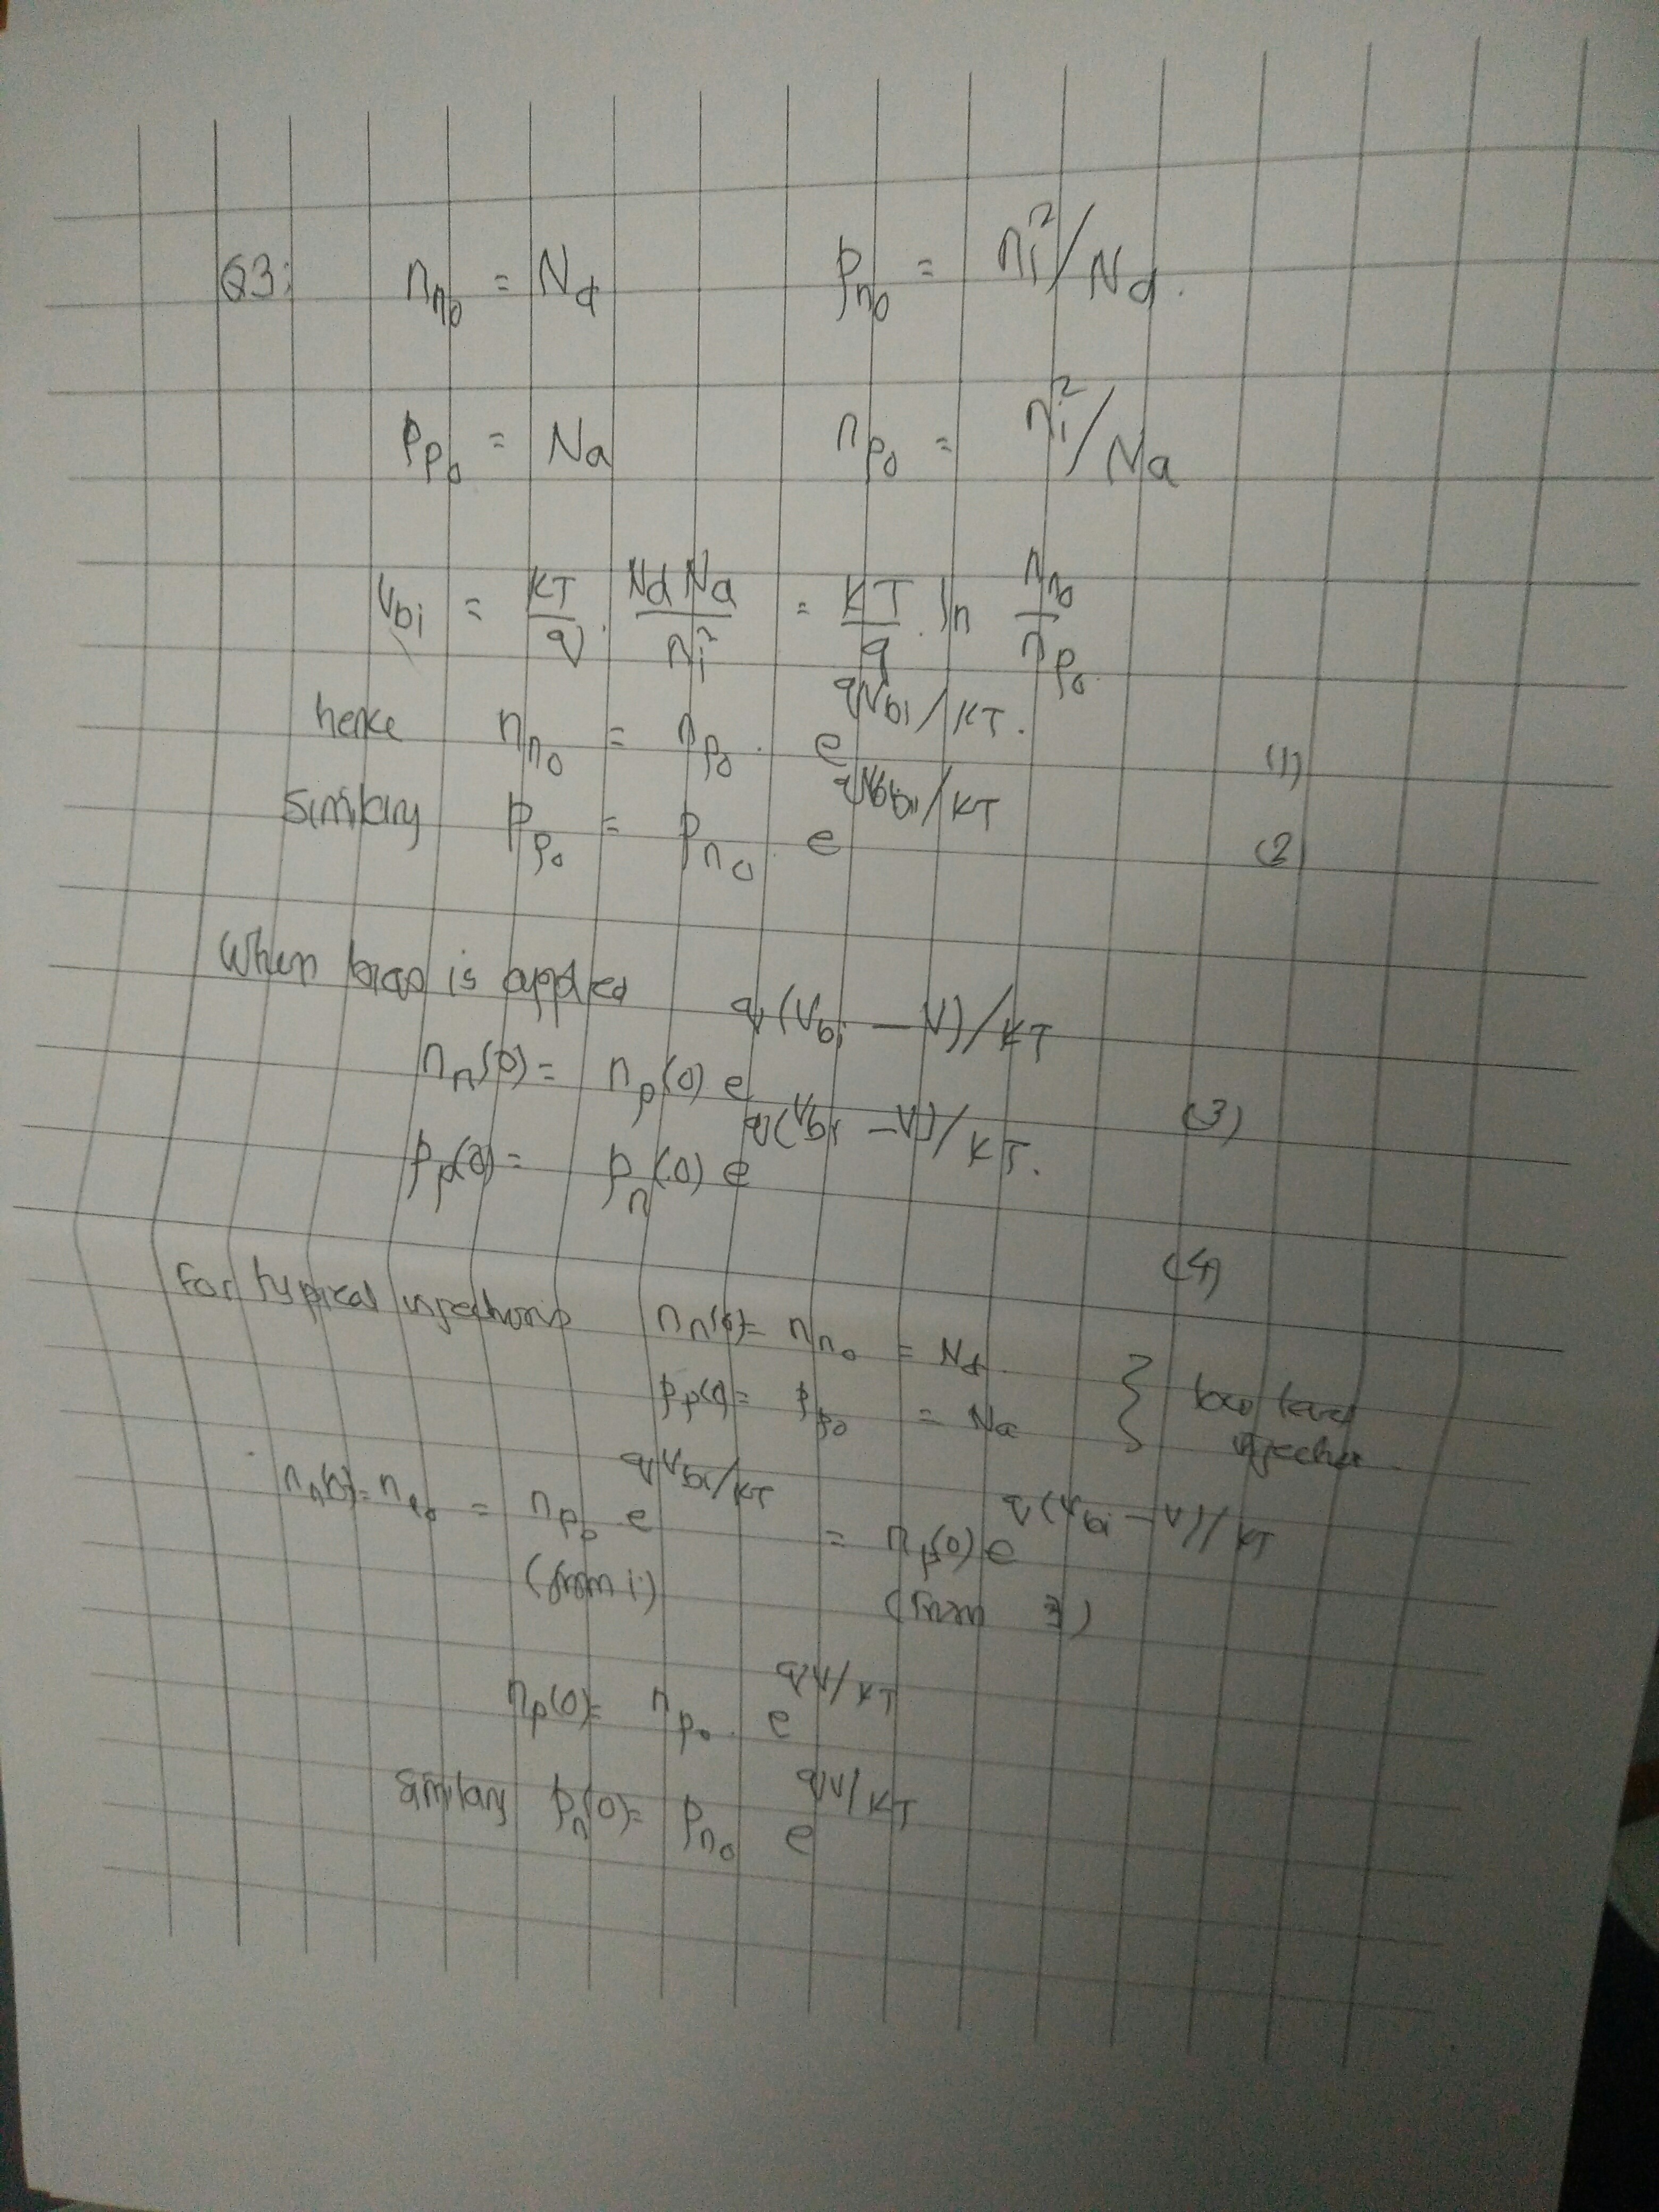 Q3: n_{n0} = N_d    p_{n0} = n_i^2/N_d.
p_{p0} = N_a    n_{p0} = n_i^2/N_a
V_{bi} = \frac{KT}{q} . \frac{N_d N_a}{n_i^2} = \frac{KT}{q} . ln \frac{n_{n0}}{n_{p0}}.
hence n_{n0} = n_{p0} . e^{qV_{bi}/KT}. (1)
Similary p_{p0} = p_{n0} . e^{qV_{bi}/KT} (2)
When bias is applied
n_n(0) = n_p(0) e^{q(V_{bi} - V)/KT} (3)
p_p(0) = p_n(0) e^{q(V_{bi} - V)/KT}. (4)
For typical injections n_n(0) = n_{n0} = N_d. } low level
p_p(0) = p_{p0} = N_a } injection
n_n(0) = n_{n0} = n_{p0} e^{qV_{bi}/KT} = n_p(0) e^{q(V_{bi} - V)/KT}
(from 1) (from 3)
n_p(0) = n_{p0} . e^{qV/KT}
Similary p_n(0) = p_{n0} e^{qV/KT}